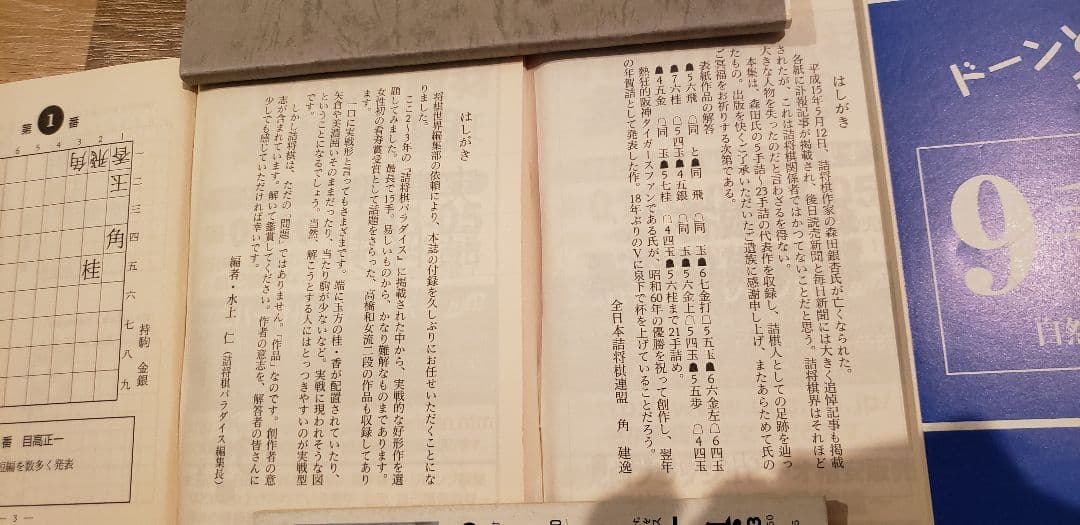 はしがき
平成15年5月12日、詰将棋作家の森田銀杏氏が亡くなられた。
各紙に訃報記事が掲載され、後日読売新聞と毎日新聞には大きく追悼記事も掲載
されたが、これは詰将棋関係者ではかつてないことだと思う。詰将棋界はそれほど
大きな人物を失ったのだと言わざるを得ない。
本集は、森田氏の5手詰〜23手詰の代表作を収録し、詰棋人としての足跡を辿っ
たもの。出版を快くご了承いただいたご遺族に感謝申し上げ、またあらためて氏の
ご冥福をお祈りする次第である。
表紙作品の解答
☗5六飛 ☖同 と☗同 飛 ☖同 玉☗6七金打☖5五玉☗6六金左☖6四玉
☗7六桂 ☖5四玉☗4五銀 ☖同 玉☗5六金上☖5四玉☗5五歩 ☖4四玉
☗4五金 ☖同 玉☗5七桂 ☖4四玉☗5六桂まで21手詰め。
熱狂的阪神タイガースファンである氏が、昭和60年の優勝を祝って創作し、翌年
の年賀詰として発表した作。18年ぶりのVに泉下で杯を上げていることだろう。
全日本詰将棋連盟 角 建逸
はしがき
将棋世界編集部の依頼により、本誌の付録を久しぶりにお任せいただくことにな
りました。
ここ2〜3年の『詰将棋パラダイス』に掲載された中から、実戦的な好形作を選
題してみました。最長で15手。易しいものから、かなり難解なものまであります。
女性初の看寿賞受賞として話題をさらった、高橋和女流二段の作品も収録してあり
ます。
一口に実戦形と言ってもさまざまです。端に玉方の桂・香が配置されていたり、
矢倉や美濃囲いそのままだったり、当たり駒が少ないなど。実戦に現われそうな図
ということになるでしょう。当然、解こうとする人にはとっつきやすいのが実戦型
です。
しかし詰将棋は、ただの「問題」ではありません。「作品」なのです。創作者の意
志が含まれています。解いて鑑賞してください。作者の意志を、解答者の皆さんに
少しでも感じていただければ幸いです。
編者・水上 仁(詰将棋パラダイス編集長)
第1番
6 5 4 3 2 1
角飛香
一
二 玉
三
四 角
五 桂
六
七
八
九
持駒 金銀
番 目高正一
短編を数多く発表
― 3 ―
ドーン
9
自然